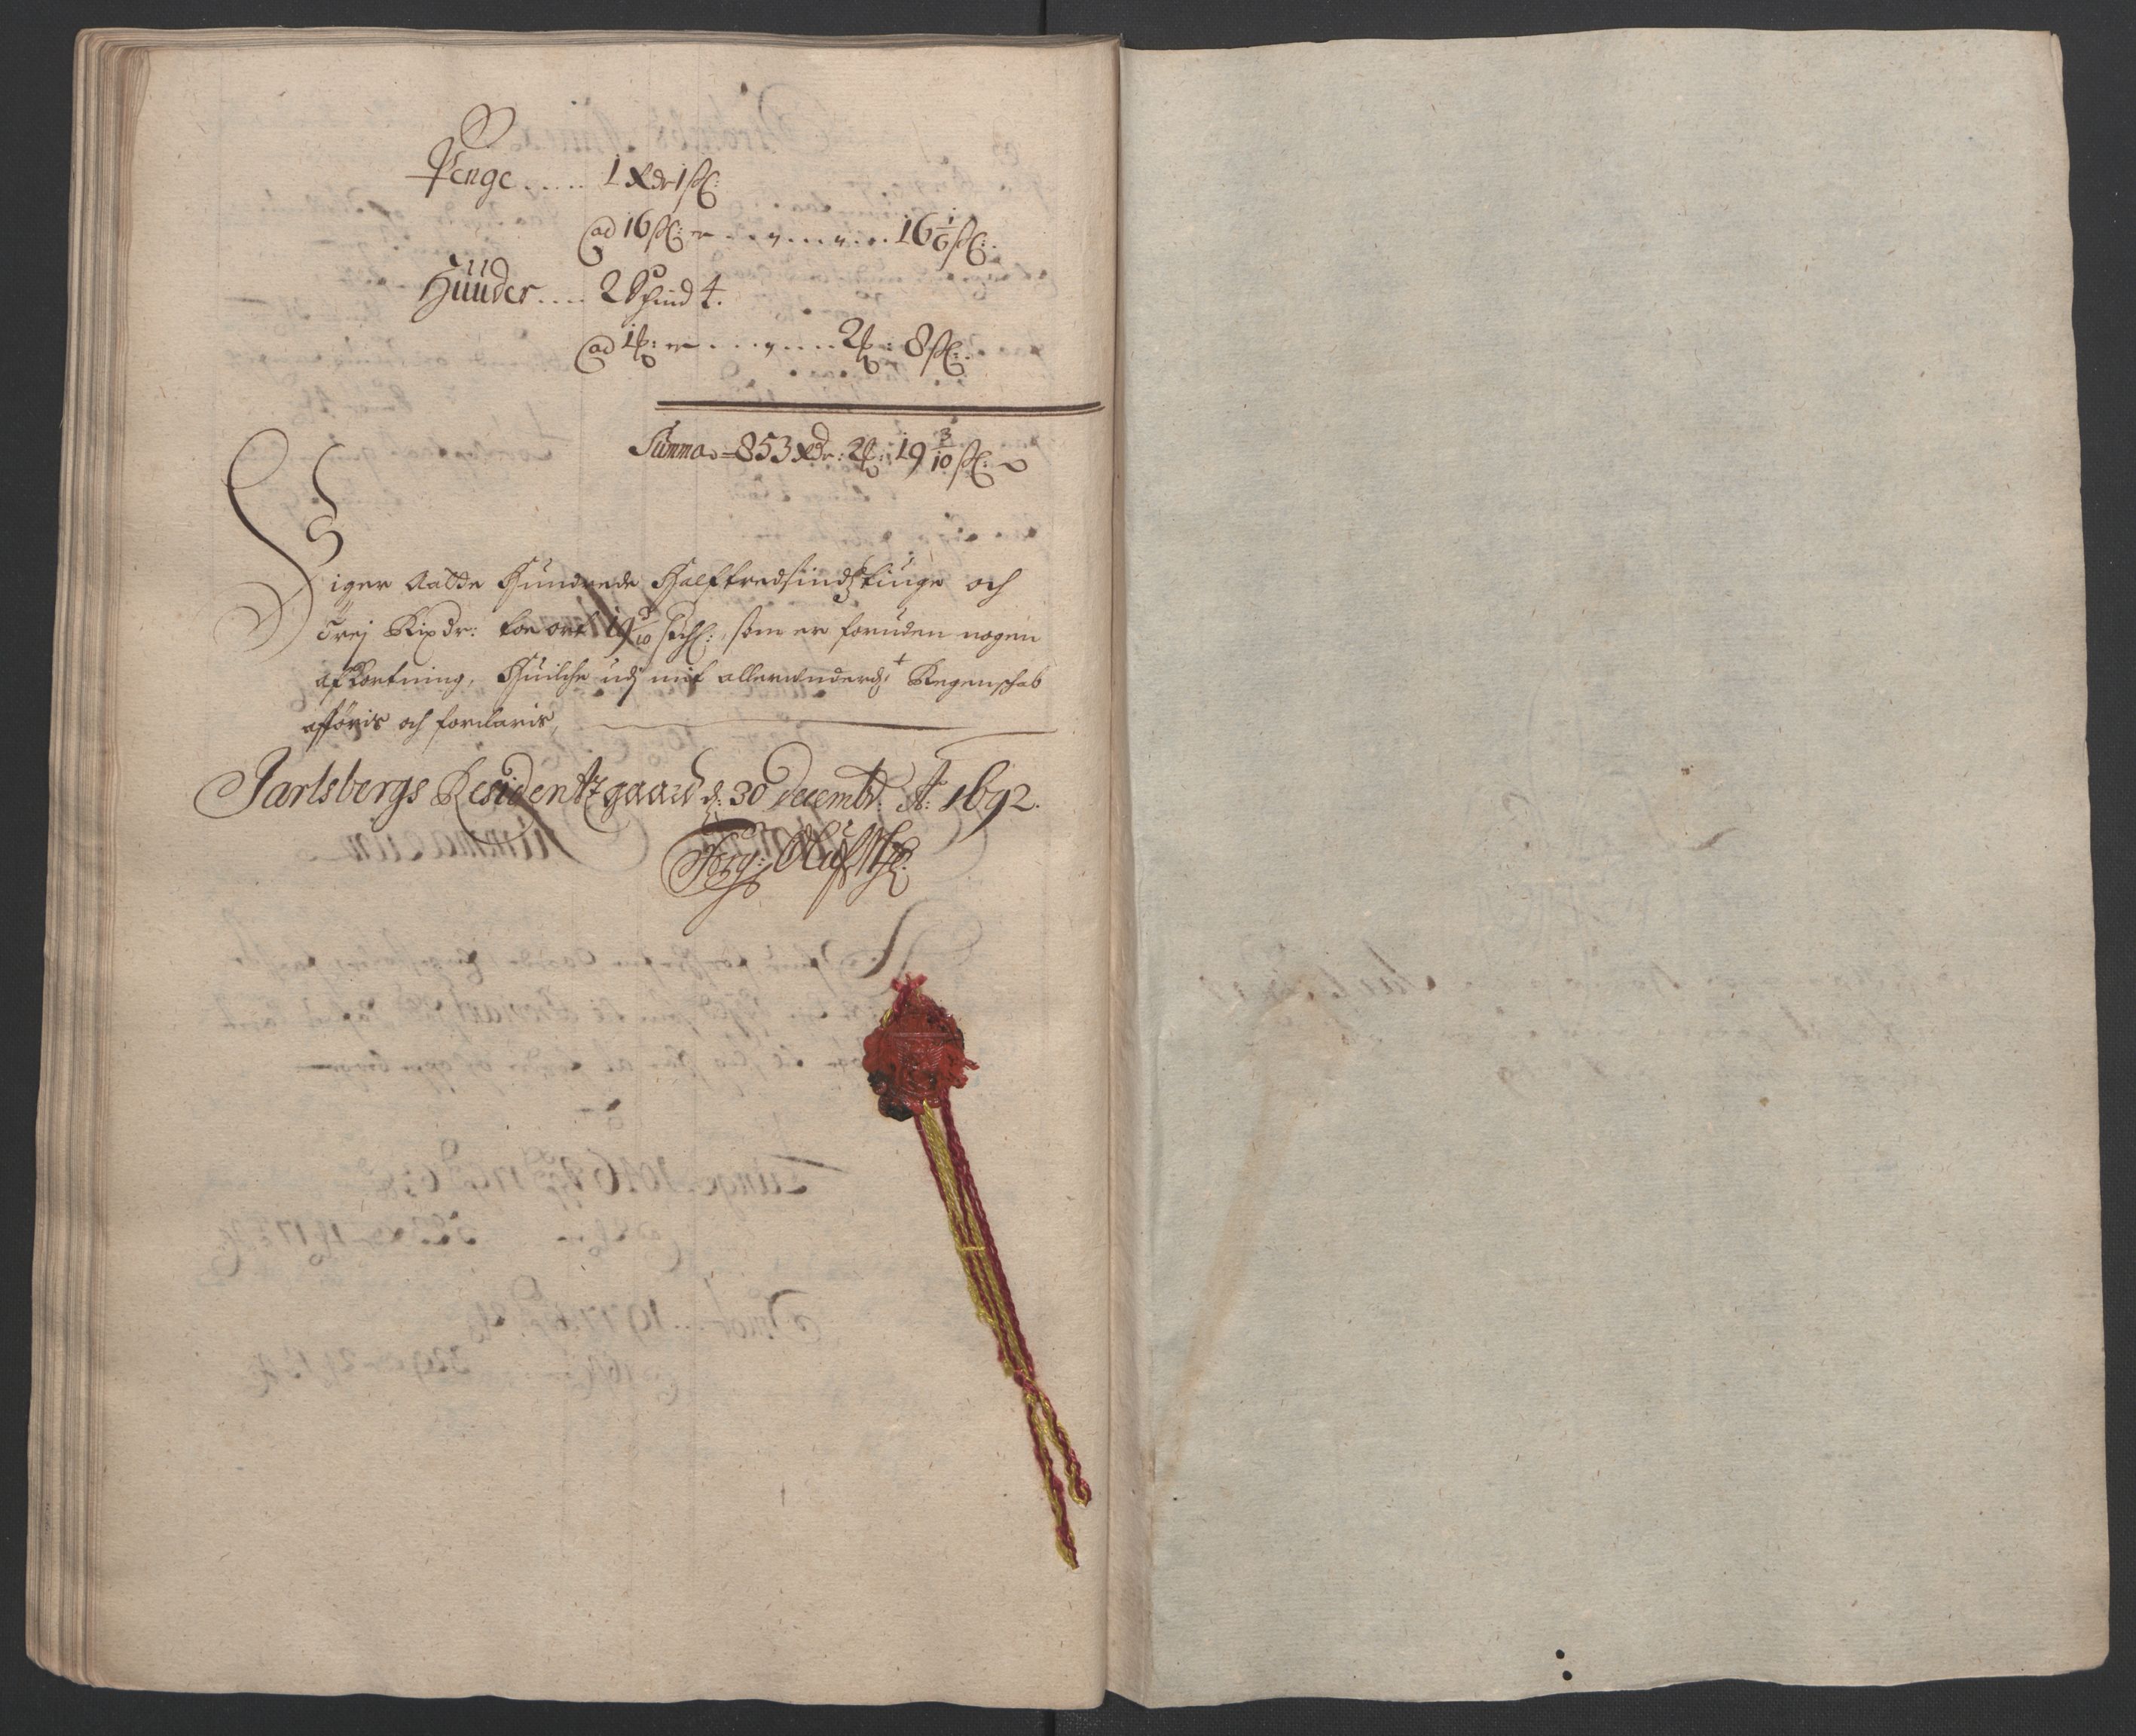 Penge..... 1 Rdr 1 ß:
ad 16 ß: er ........ 16 1/6 ß:
Hüüder.... 2 Schind 4.
ad 1 ƒ: er ........ 2 ƒ: 8 ß:
Summa = 853 Rdr: 2 ƒ: 19 3/10 ß:
Siger Aatte Hundrede Halftredsindstiuge och
trej Rixdr: toe ort 19 3/10 schl:, som er foruden nogen
afkortning, huilche udj mit allerunderd: Regenschab
efføris och forclaris,
Jarlsbergs Residentzgaard d: 30 Decembr: A: 1692.